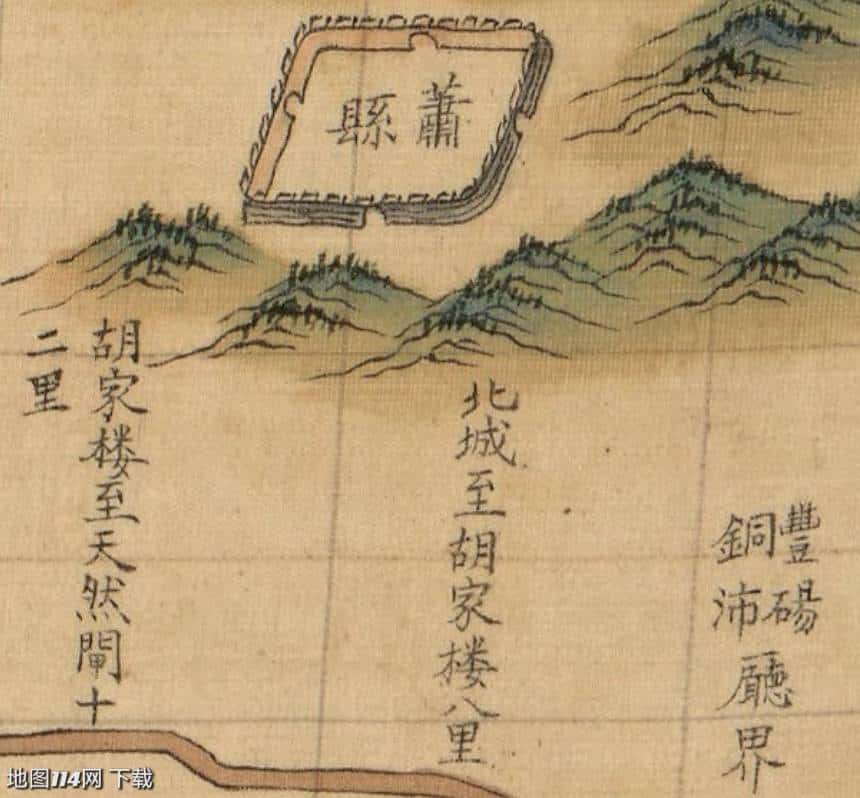 蕭縣
豐碭
銅沛
廳界
北城至胡家楼八里
胡家楼至天然閘十
二里
地图114网 下载